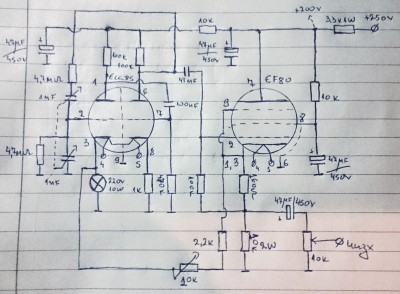 +200V
+250V
47µF
450V
10K
47µF
450V
3,3K 1W
100K
ECC85
EF80
47nF
100nF
10K
1
6
2
7
3
8
4
9
5
7
9
8
2
1,3
4
5
6
1nF
1nF
220V
10W
1K
47µF
450V
47µF/450V
2,2K
2W
10K
10K